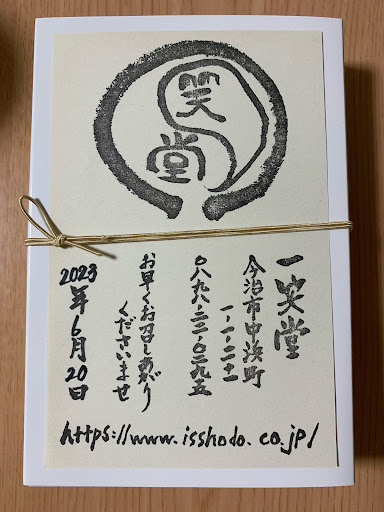 笑
堂
一笑堂
今治市中浜町
〇八九八・二二・〇二九五
お早くお召しあがり
くださいませ
2023年6月20日
https://www.isshodo.co.jp/